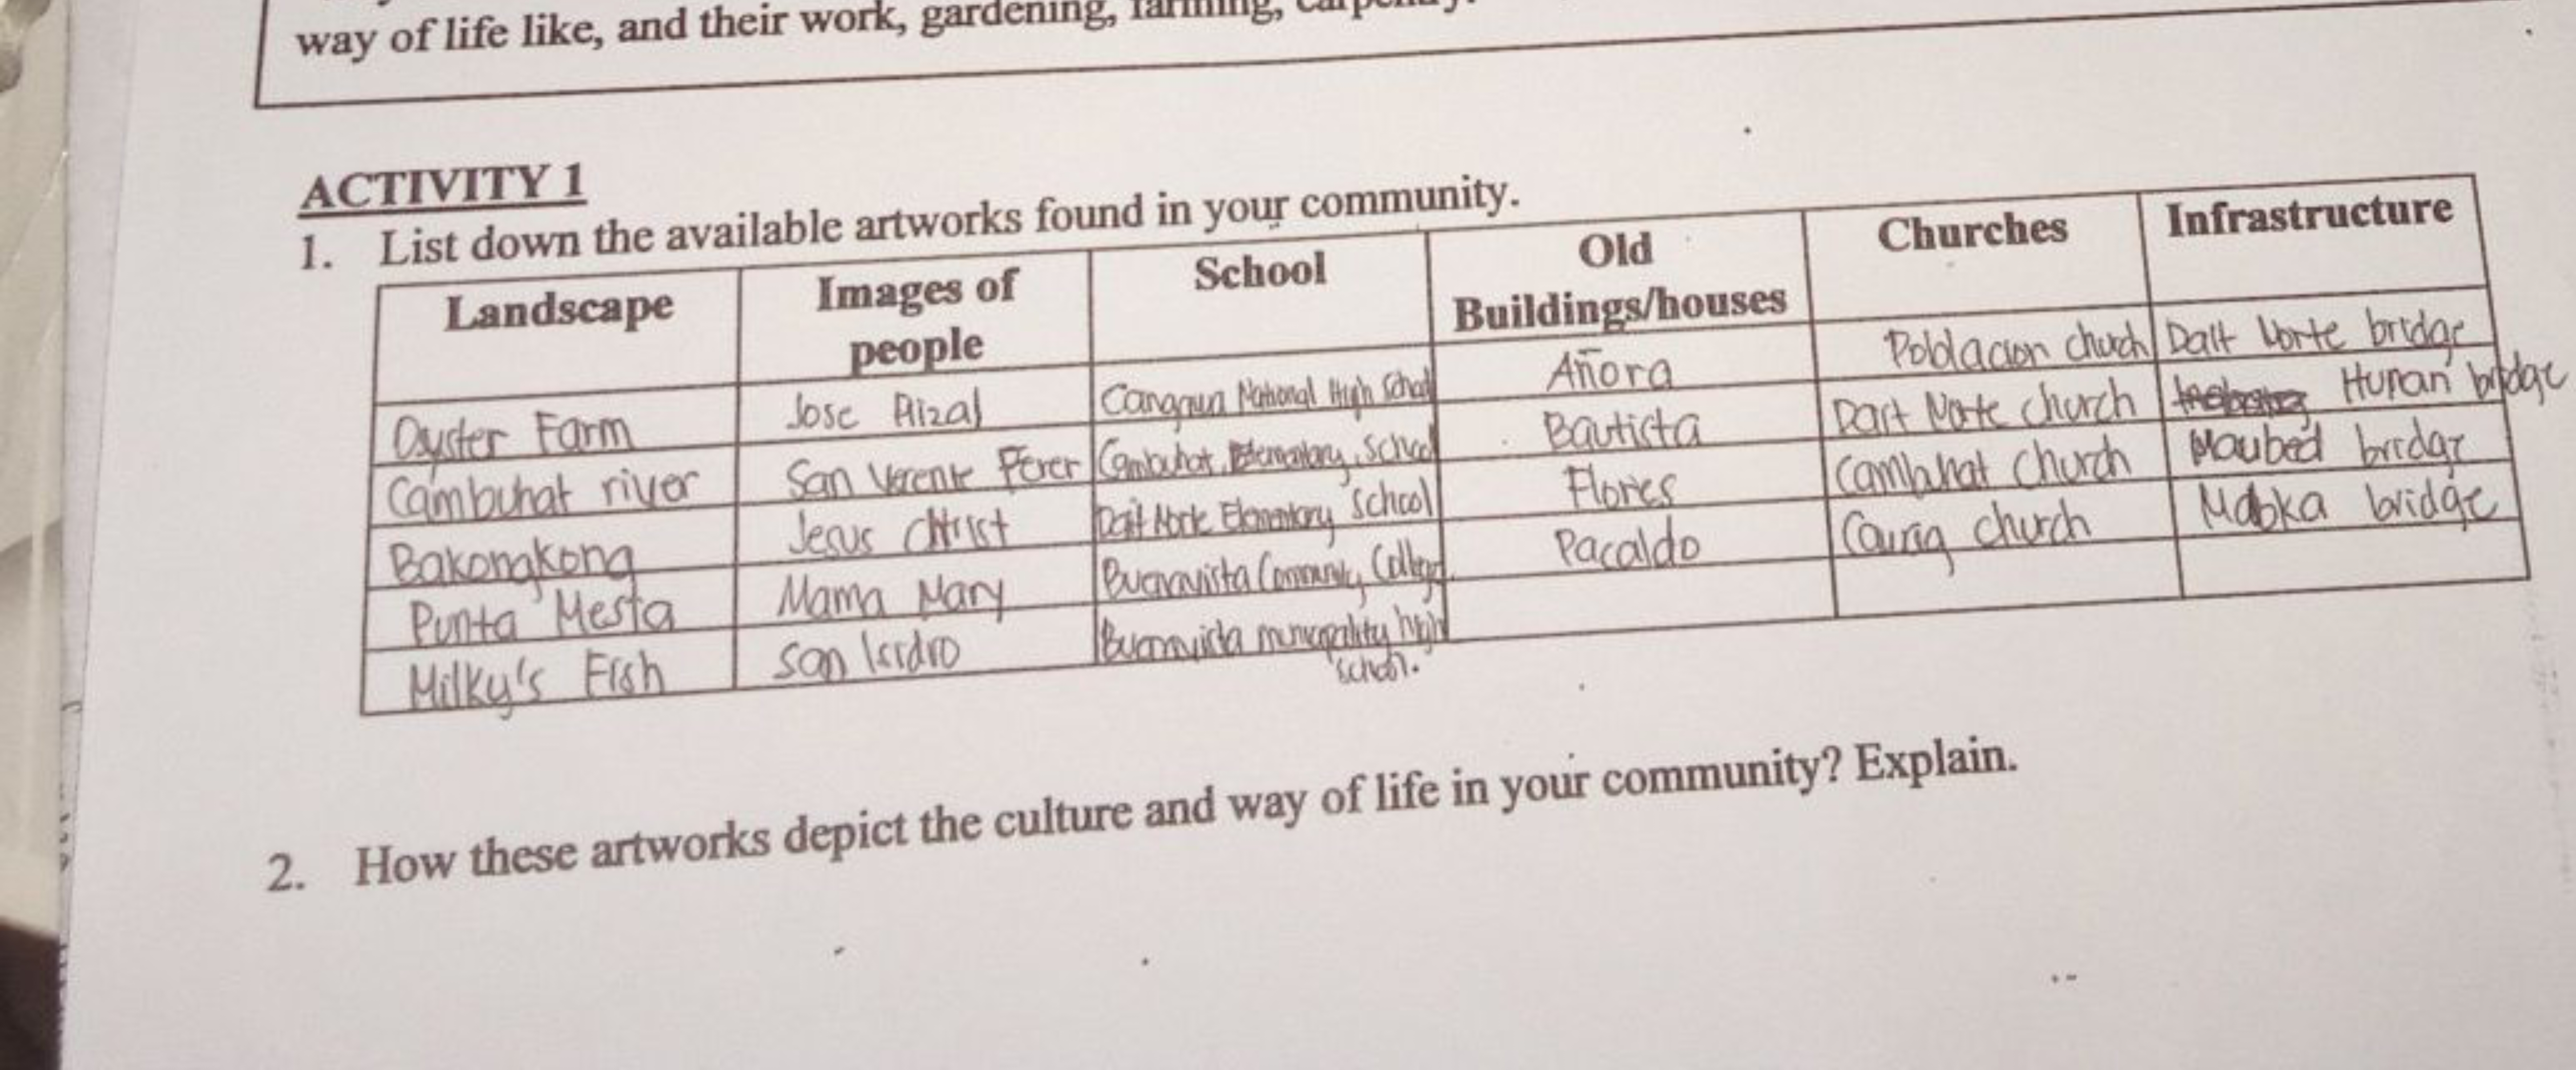 way of life like, and their work, gardening, farming, carpentry.
ACTIVITY 1
1. List down the available artworks found in your community.
Landscape Images of people School Old Buildings/houses Churches Infrastructure
Oyster Farm Jose Rizal National High School Añora Poblacion church Dait Norte bridge
Cambuhat river San Vecente Ferer Cambuhat Elementary School Bautista Dait Norte church bridge
Bakongkong Jesus Christ Dait Norte Elementary School Flores Cambuhat church bridge
Punta Mesta Mama Mary Buenavista Community College Pacaldo church bridge
Milky's Fish San Isidro Buenavista municipality high school.
2. How these artworks depict the culture and way of life in your community? Explain.